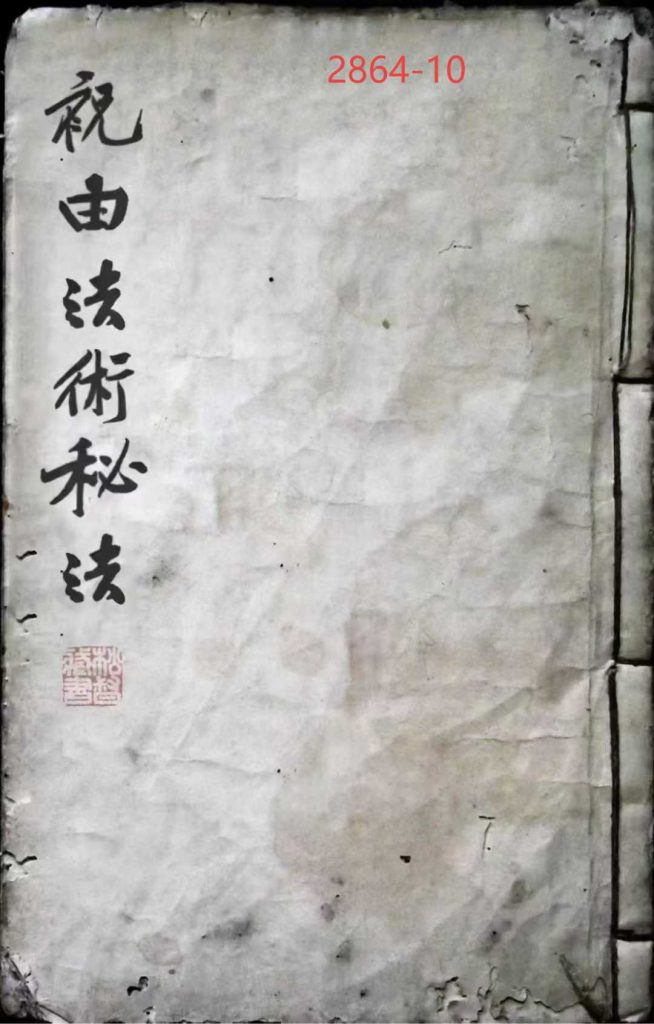 2864-10
祝由法術秘法